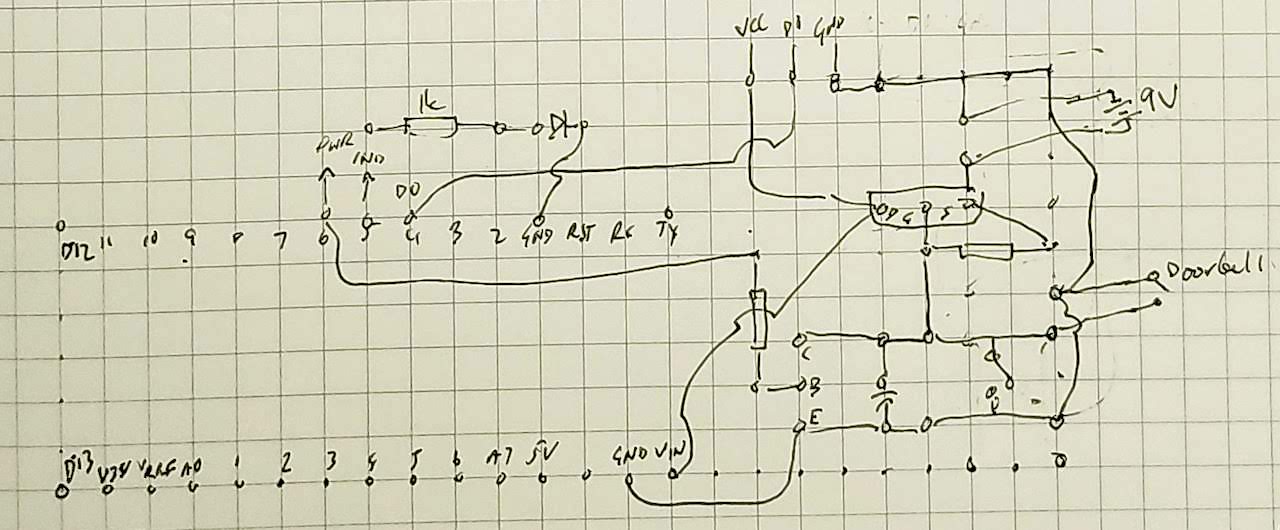 VCC D1 GND
1k
9V
PWR IND
D0
D G S
D12 11 10 9 8 7 6 5 4 3 2 GND RST RX TX
Doorbell
C
B
E
D13 V3V VREF A0 1 2 3 4 5 6 A7 5V GND VIN